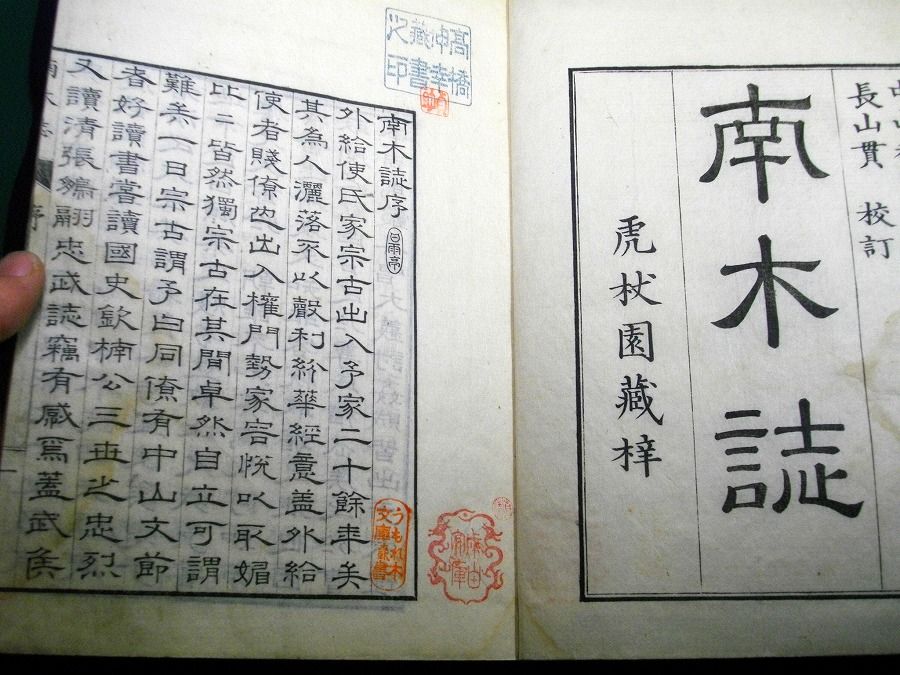 長山貫 校訂
南木誌
虎杖園藏梓
高橋
坤幸
藏書
之印
南木誌序 白雨亭
外給使氏家宗古出入予家二十餘年矣
其為人灑落不以聲利紛華經意蓋外給
使者賤僚也出入権門勢家容悅以取媚
比二皆然獨宗古在其間卓然自立可謂
難矣一日宗古謂予曰同僚有中山文節
者好讀書嘗讀國史欽楠公三世之忠烈
又讀清張鵬翮忠武誌竊有感焉蓋武侯
序
うもれ木
文庫藏書